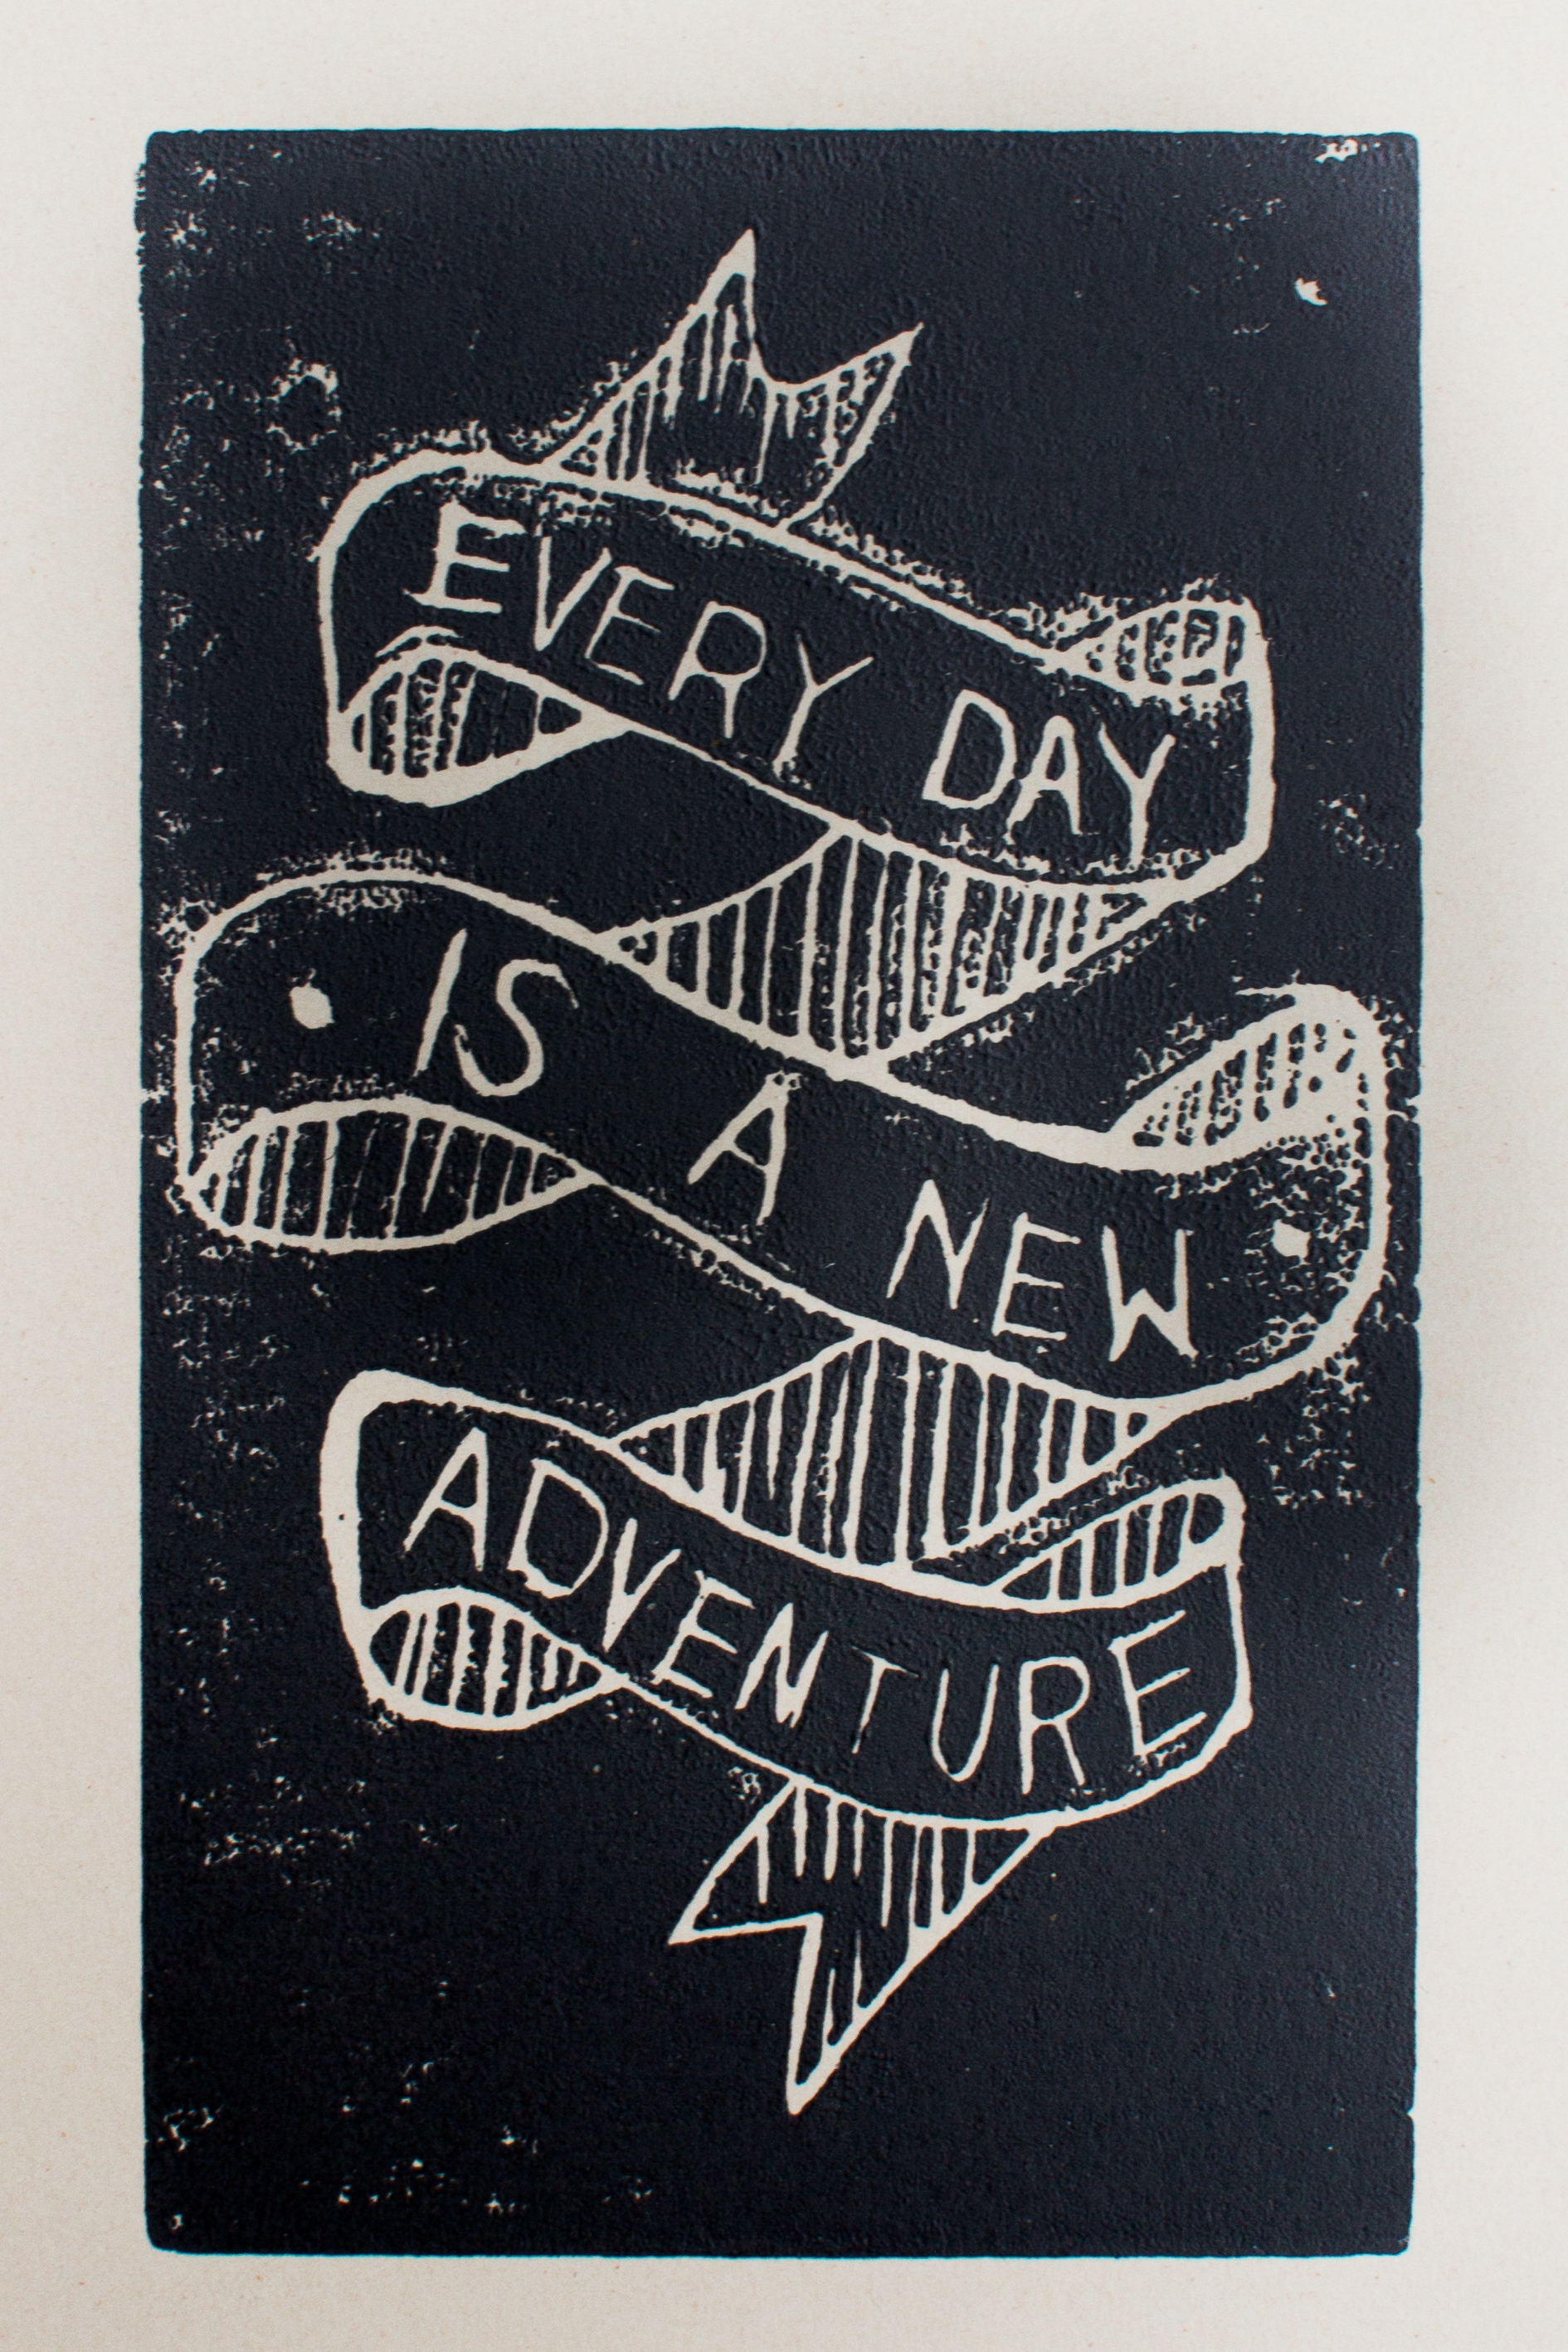 EVERY DAY
IS A NEW
ADVENTURE